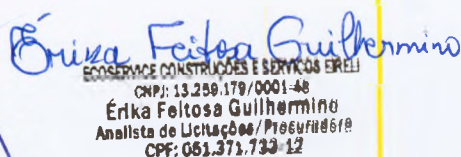 Érika Feitosa Guilhermino
ECOSERVICE CONSTRUÇÕES E SERVIÇOS EIRELI
CNPJ: 13.259.179/0001-48
Érika Feitosa Guilhermino
Analista de Licitações/Procuradora
CPF: 051.371.733-12